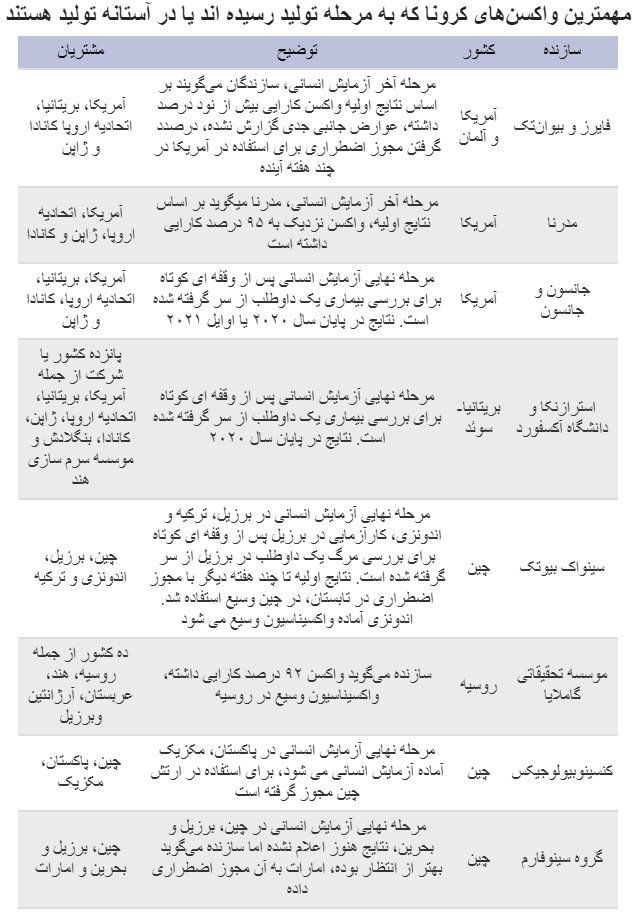 مهمترین واکسن‌های کرونا که به مرحله تولید رسیده اند یا در آستانه تولید هستند
سازنده
کشور
توضیح
مشتریان
فایزر و بیوان‌تک
آمریکا
و آلمان
مرحله آخر آزمایش انسانی، سازندگان می‌گویند بر
اساس نتایج اولیه واکسن کارایی بیش از نود درصد
داشته، عوارض جانبی جدی گزارش نشده، درصدد
گرفتن مجوز اضطراری برای استفاده در آمریکا در
چند هفته آینده
آمریکا، بریتانیا،
اتحادیه اروپا کانادا
و ژاپن
مدرنا
آمریکا
مرحله آخر آزمایش انسانی، مدرنا میگوید بر اساس
نتایج اولیه، واکسن نزدیک به ۹۵ درصد کارایی
داشته است
آمریکا، اتحادیه
اروپا، ژاپن و کانادا
جانسون و
جانسون
آمریکا
مرحله نهایی آزمایش انسانی پس از وقفه ای کوتاه
برای بررسی بیماری یک داوطلب از سر گرفته شده
است. نتایج در پایان سال ۲۰۲۰ یا اوایل ۲۰۲۱
آمریکا، بریتانیا،
اتحادیه اروپا، کانادا
و ژاپن
استرازنکا و
دانشگاه آکسفورد
بریتانیا-
سوئد
مرحله نهایی آزمایش انسانی پس از وقفه ای کوتاه
برای بررسی بیماری یک داوطلب از سر گرفته شده
است. نتایج در پایان سال ۲۰۲۰
پانزده کشور یا
شرکت از جمله
آمریکا، بریتانیا،
اتحادیه اروپا، ژاپن،
کانادا، بنگلادش و
موسسه سرم سازی
هند
سینواک بیوتک
چین
مرحله نهایی آزمایش انسانی در برزیل، ترکیه و
اندونزی، کارآزمایی در برزیل پس از وقفه ای کوتاه
برای بررسی مرگ یک داوطلب در برزیل از سر
گرفته شده است. نتایج اولیه تا چند هفته دیگر با مجوز
اضطراری در تابستان، در چین وسیع استفاده شد.
اندونزی آماده واکسیناسیون وسیع می شود
چین، برزیل،
اندونزی و ترکیه
موسسه تحقیقاتی
گامالایا
روسیه
سازنده می‌گوید واکسن ۹۲ درصد کارایی داشته،
واکسیناسیون وسیع در روسیه
ده کشور از جمله
روسیه، هند،
عربستان، آرژانتین
وبرزیل
کنسینوبیولوجیکس
چین
مرحله نهایی آزمایش انسانی در پاکستان، مکزیک
آماده آزمایش انسانی می شود، برای استفاده در ارتش
چین مجوز گرفته است
چین، پاکستان،
مکزیک
گروه سینوفارم
چین
مرحله نهایی آزمایش انسانی در چین، برزیل و
بحرین، نتایج هنوز اعلام نشده اما سازنده می‌گوید
بهتر از انتظار بوده، امارات به آن مجوز اضطراری
داده
چین، برزیل و
بحرین و امارات